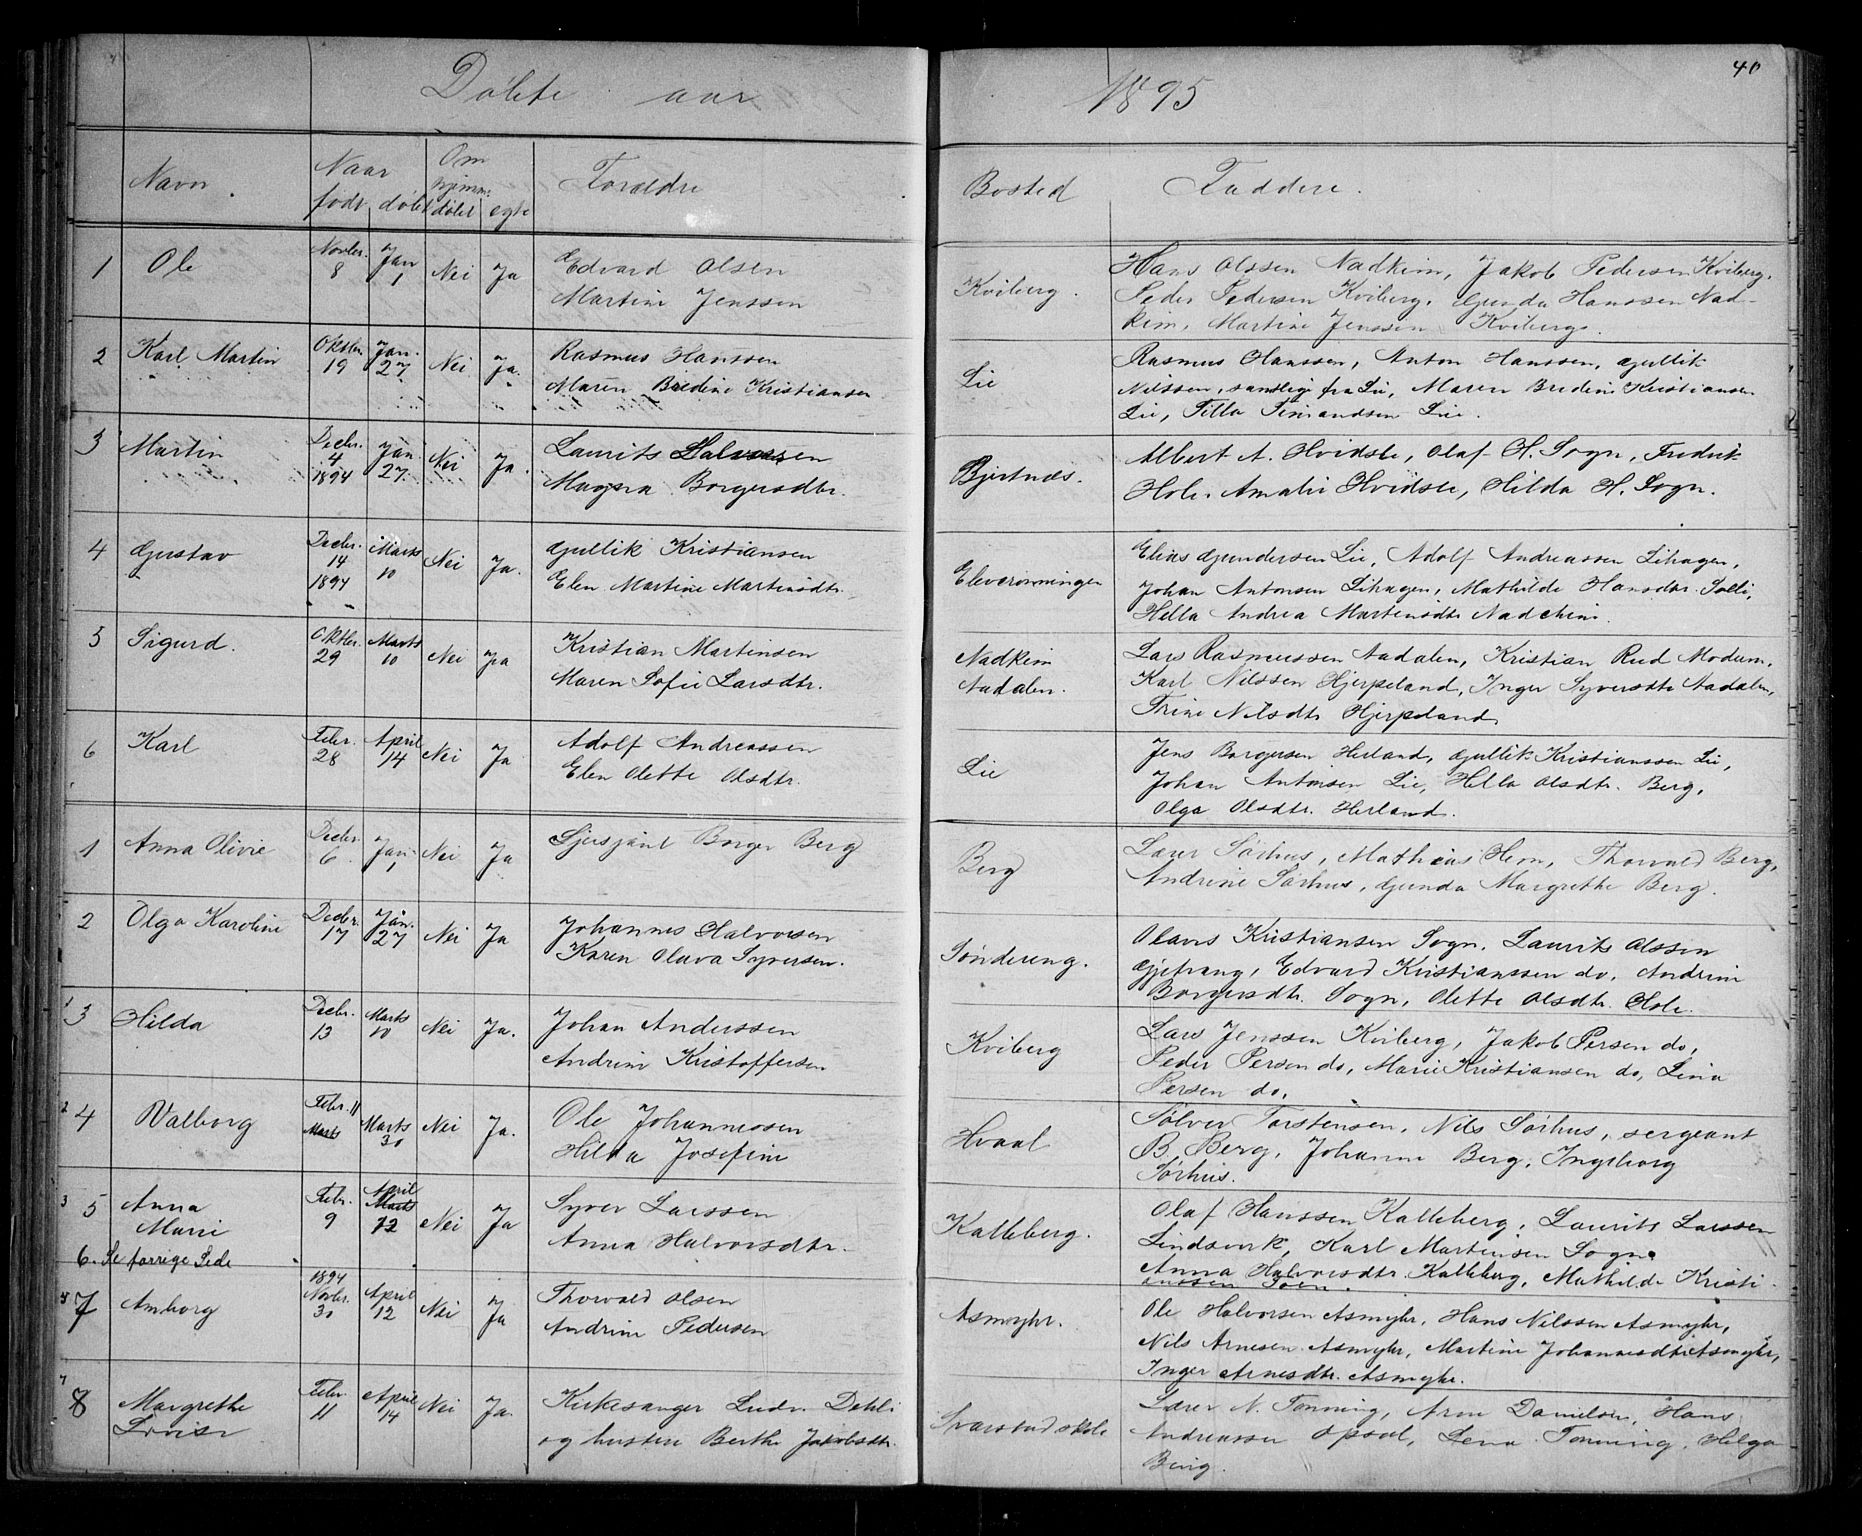 40
Døbte aar 1895
Navn. Naar Om Forældre Bosted Faddere.
født døbt hjemmedøbt egte
1 Ole Novbr. 8 Jan 1 Nei Ja Edvard Olsen
Martine Jenssen
Kviberg.
Hans Olssen Nadkim, Jakob Pedersen Kviberg,
Peder Pedersen Kviberg, Gunda Hanssen Nad-
kim, Martine Jenssen Kviberg.
2 Karl Martin Oktbr. 19 Jan. 27 Nei Ja. Rasmus Hanssen
Maren Bredine Kristiansen
Lie
Rasmus Hanssen, Anton Hanssen, Gullik
Nilssen, samtlige fra Lie, Maren Bredine Kristiansen
Lie, Lie.
3 Martin Decbr. 4 1894 Jan. 27. Nei Ja. Laurits Halvorsen
Magna Borgersdtr.
Bjertnæs.
Albert A. Hvidste, Olaf H. Sogn, Fredrik
Hole, Amalie Hvidste, Hilda H. Sogn.
4 Gustav Decbr. 14 1894 Marts 10 Nei Ja. Gullik Kristiansen
Elen Martine Martinsdtr.
Eleverønningen
Elias Gundersen Lie, Adolf Andreassen Lihagen,
Johan Antonsen Lihagen, Mathilde Hansdtr. Solli,
Hella Andrea Martensdtr Nadchim.
5 Sigurd. Oktbr. 29 Marts 10 Nei Ja Kristian Martinsen
Maren Sofie Larsdtr.
Nadkim
Aadalen.
Lars Rasmussen Aadalen, Kristian Rud Modum,
Karl Nilssen Hjerpeland, Inger Syversdtr Aadalen,
Trine Nilsdtr Hjerpeland
6 Karl Febr. 28 April 14 Nei Ja Adolf Andreassen
Elen Olette Olsdtr.
Lie
Jens Borgersen Herland, Gullik Kristianssen Lie,
Johan Antonsen Lie, Hella Olsdtr. Berg,
Olga Olsdtr. Herland.
1 Anna Olivie Decbr. 6 Jan 1 Nei Ja Sjersjant Borger Berg
Berg
Lærer Sørhus, Mathias Hem, Thorvald Berg,
Andrine Sørhus, Gunda Margrethe Berg.
2 Olga Karoline Decbr. 17 Jan. 27 Nei Ja Johannes Halvorsen
Karen Olava Syversen.
Søndereng.
Olaves Kristiansen Sogn, Laurits Olssen
Gjefvang, Edvard Kristianssen do, Andrine
Borgersdtr. Sogn, Olette Olsdtr. Hole.
3 Hilda Decbr. 13 Marts 10 Nei Ja. Johan Anderssen
Andrine Kristoffersen
Kviberg
Lars Jenssen Kviberg, Jakob Persen do,
Peder Persen do, Marie Kristiansen do, Lina
Persen do.
2 4 Valborg Febr. 11 Marts Marts 30 Nei Ja. Ole Johannessen
Hilda Josefine
Hvaal
Sølver Torstensen, Nils Sørhus, sergeant
B. Berg, Johanne Berg, Ingeborg
Sørhus.
3 5 Anna Marie Febr. 9 April Marts 12 Nei Ja Syver Larssen
Anna Halvorsdtr.
Kalleberg.
Olaf Hanssen Kalleberg, Laurits Larssen
Lindsverk, Karl Martinsen Sogn
Anna Halvorsdtr. Kalleberg, Mathilde Kristi-
anssen
6. Se forrige Side
7 Amborg 1894 Novbr. 30 April 12 Nei Ja Thorvald Olsen
Andrine Pedersen
Asmyhr.
Ole Halvorsen Asmyhr, Hans Nilssen Asmyhr,
Nils Arnesen Asmyhr, Martine Johannesdtr Asmyhr,
Inger Arnesdtr. Asmyhr.
7 8 Margrethe Lovise Febr. 11 April 14 Nei Ja. Kirkesanger Ludv. Dehli
og hustru Berthe Jakobsdtr.
Svarstad skole
Lærer N. Tonning, Arne Danielsen, Hans
Andreassen Opsal, Lena Tonning, Helga
Berg.